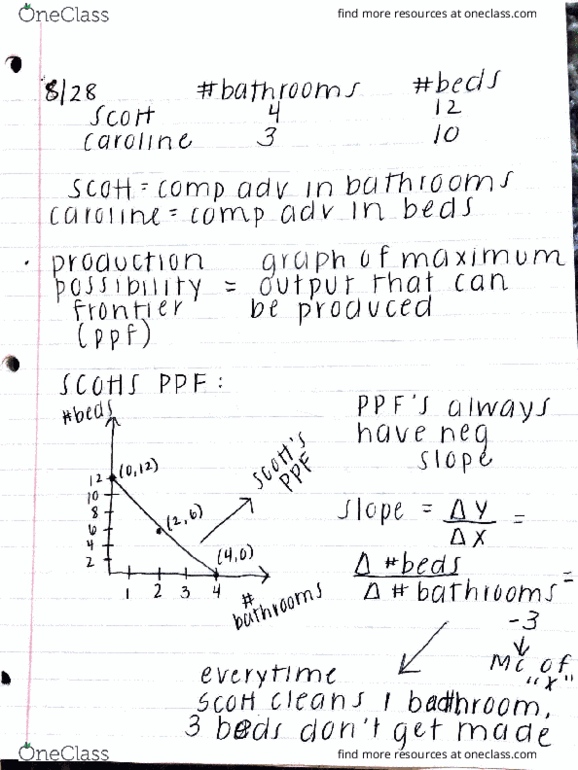 OneClass find more resources at oneclass.com
8/28 #bathrooms #beds
Scott 4 12
Caroline 3 10
Scott = comp adv in bathrooms
caroline = comp adv in beds
• production graph of maximum
possibility = output that can
frontier be produced
(ppf)
SCOTTS PPF:
#beds
PPF'S always
have neg
slope
12 (0,12)
10
8
6 (2,6)
4
2 (4,0)
1 2 3 4
# bathrooms
Scott's
PPF
Slope = ΔY =
ΔX
Δ #beds =
Δ # bathrooms
-3
MC of
"X"
everytime
Scott cleans 1 bathroom,
3 beds don't get made
OneClass find more resources at oneclass.com